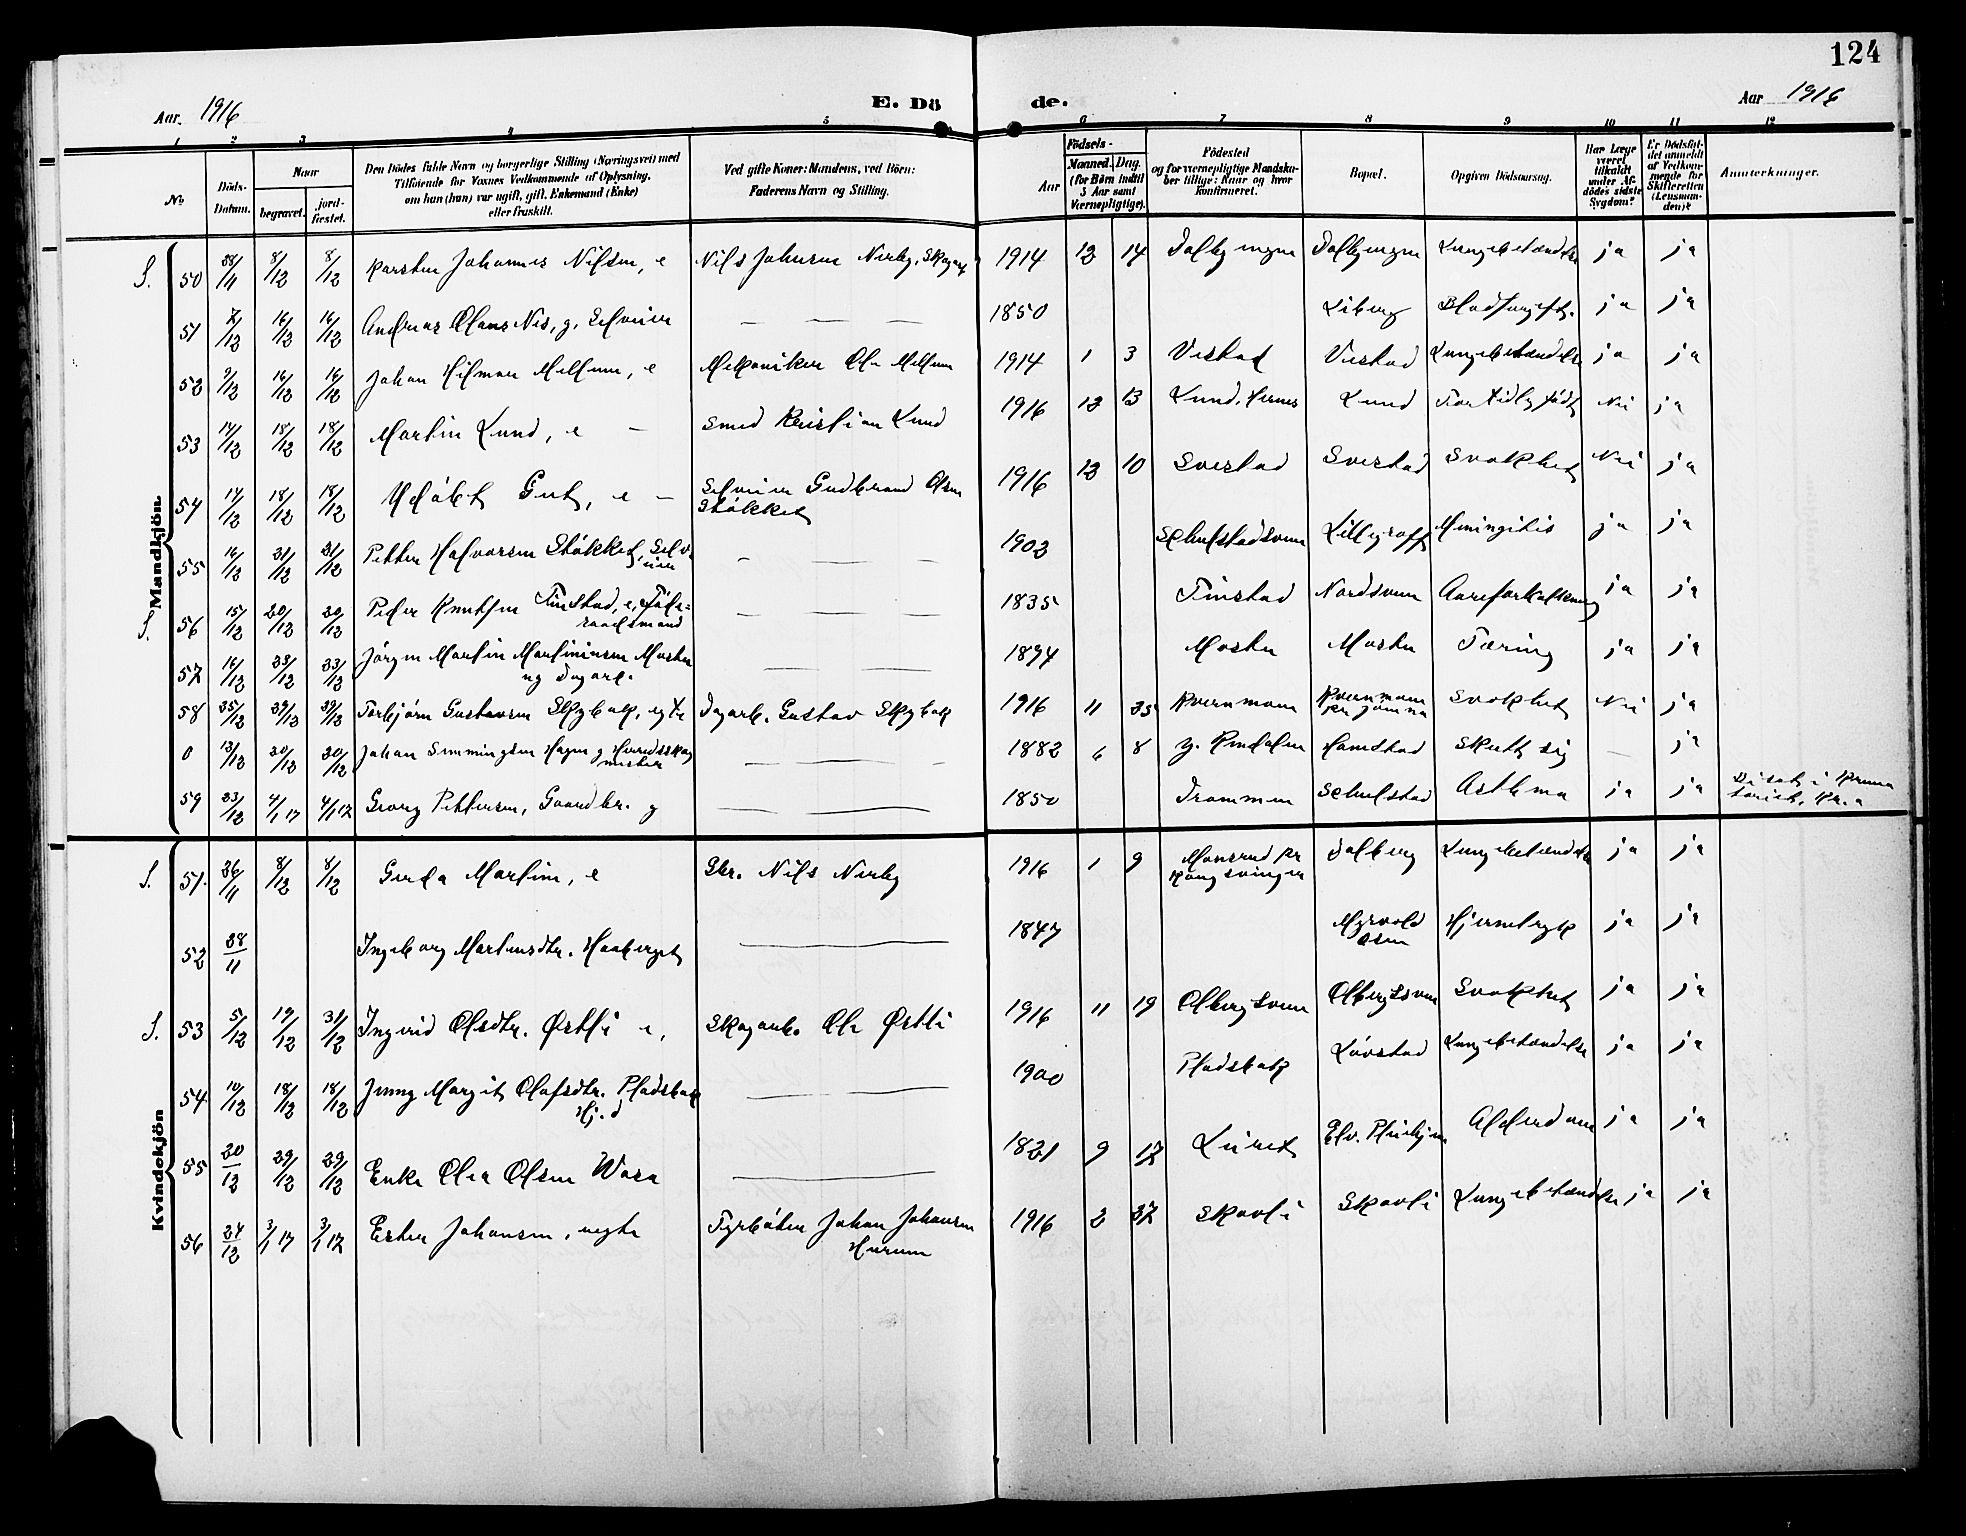 124
Aar. 1916
E. Dö
de.
Aar 1916
1 2 3 4 5 6 7 8 9 10 11 12
No
Döds-Datum.
Naar
begravet.
jord-fæstet.
Den Dödes fulde Navn og borgerlige Stilling (Næringsvei) med
Tilföiende for Voxnes Vedkommende af Oplysning,
om han (hun) var ugift, gift, Enkemand (Enke)
eller fraskilt.
Ved gifte Koner: Mandens, ved Börn:
Faderens Navn og Stilling.
Födsels-
Aar
Maaned. Dag.
(for Börn indtil
5 Aar samt
Værnepligtige).
Födested
og for værnepligtige Mandska-
ber tillige: Naar og hvor
konfirmeret.
Bopæl.
Opgiven Dödsaarsag.
Har Læge
været
tilkaldt
under Af-
dödes sidste
Sygdom?
Er Dödsfal-
det anmeldt
af Vedkom-
mende for
Skifteretten
(Lensman-
den)?
Anmerkninger.
Mandkjön
S. 50 28/11 8/12 8/12 Karsten Johannes Nilsen, e Nils Johnsen Nerby, Skogarb 1914 12 14 Dolbyengen Dolbyengen Lungebetændelse ja ja
51 7/12 16/12 16/12 Andreas Olaus Nis, g, Selveier — — — 1850 Liberg Blodforgift. ja ja
52 9/12 16/12 16/12 Johan Hilmar Mellum, e Mekaniker Ole Mellum 1914 1 3 Vestad Vestad Lungebetændelse ja ja
53 14/12 18/12 18/12 Martin Lund, e — Smed Kristian Lund 1916 12 13 Lund, Hernes Lund For tidlig födt Nei ja
54 14/12 18/12 18/12 Udöbt Gut, e — Selveier Gudbrand Olsen
Stökket 1916 12 10 Sorstad Sorstad Svakhet Nei ja
55 16/12 21/12 21/12 Petter Halvorsen Stökket, Selv-
eier — — — 1902 Schulstadsveen Lillegraff Meningitis ja ja
S. 56 15/12 20/12 20/12 Peder Knutsen Finstad, e, Föde-
raadsmand — — — 1835 Finstad Nordsveen Aareforkalkning ja ja
57 16/12 23/12 23/12 Jörgen Martin Martiniusen Mosten
ug Dagarb. — — 1894 Mosten Mosten Tæring ja ja
58 25/12 29/12 29/12 Torbjörn Gustavsen Skybak, egte Dagarb. Gustav Skybak 1916 11 25 Kvernmoen Kvernmoen
pr jömna Svakhet Nei ja
0 13/12 20/12 20/12 Johan Simmingsen Hagen g Herredsskog
mester — — — 1882 6 8 y. Rendalen Hamstad Skutt sig — ja
59 23/12 4/1 17 4/1 17 Georg Pettersen, Gaardbr. g — — 1850 Drammen Schulstad Asthma ja ja Bisat i Krema
toriet, Kr.a
Kvindekjön
S. 51. 26/11 8/12 8/12 Gerda Martine, e Gbr. Nils Nerby 1916 1 9 Monsrud pr
Kongsvinger Dolberg Lungebetændelse ja ja
52 28/11 Ingeborg Martinsdtr. Haaberget — 1847 Myrvold
Aasen Hjernetryk ja ja
S. 53 5/12 19/12 21/12 Ingrid Olsdtr. Østli e, Skogarb. Ole Østli 1916 11 19 Olbergsveen Olbergsveen Svakhet ja ja
54 10/12 18/12 18/12 Jenny Margit Olafsdtr. Pladsbak
Hj.d — — 1900 Pladsbak Lövstad Lungebetændelse ja ja
55 20/12 29/12 29/12 Enke Olea Olsen Wasa — — 1821 9 17 Luret Elv. Pleiehjem Alderdom ja ja
56 24/12 3/1 17 3/1 17 Ester Johansen, uegte Fyrböter Johan Johansen
Hurum 1916 2 27 Skovli Skovli Lungebetændelse ja ja